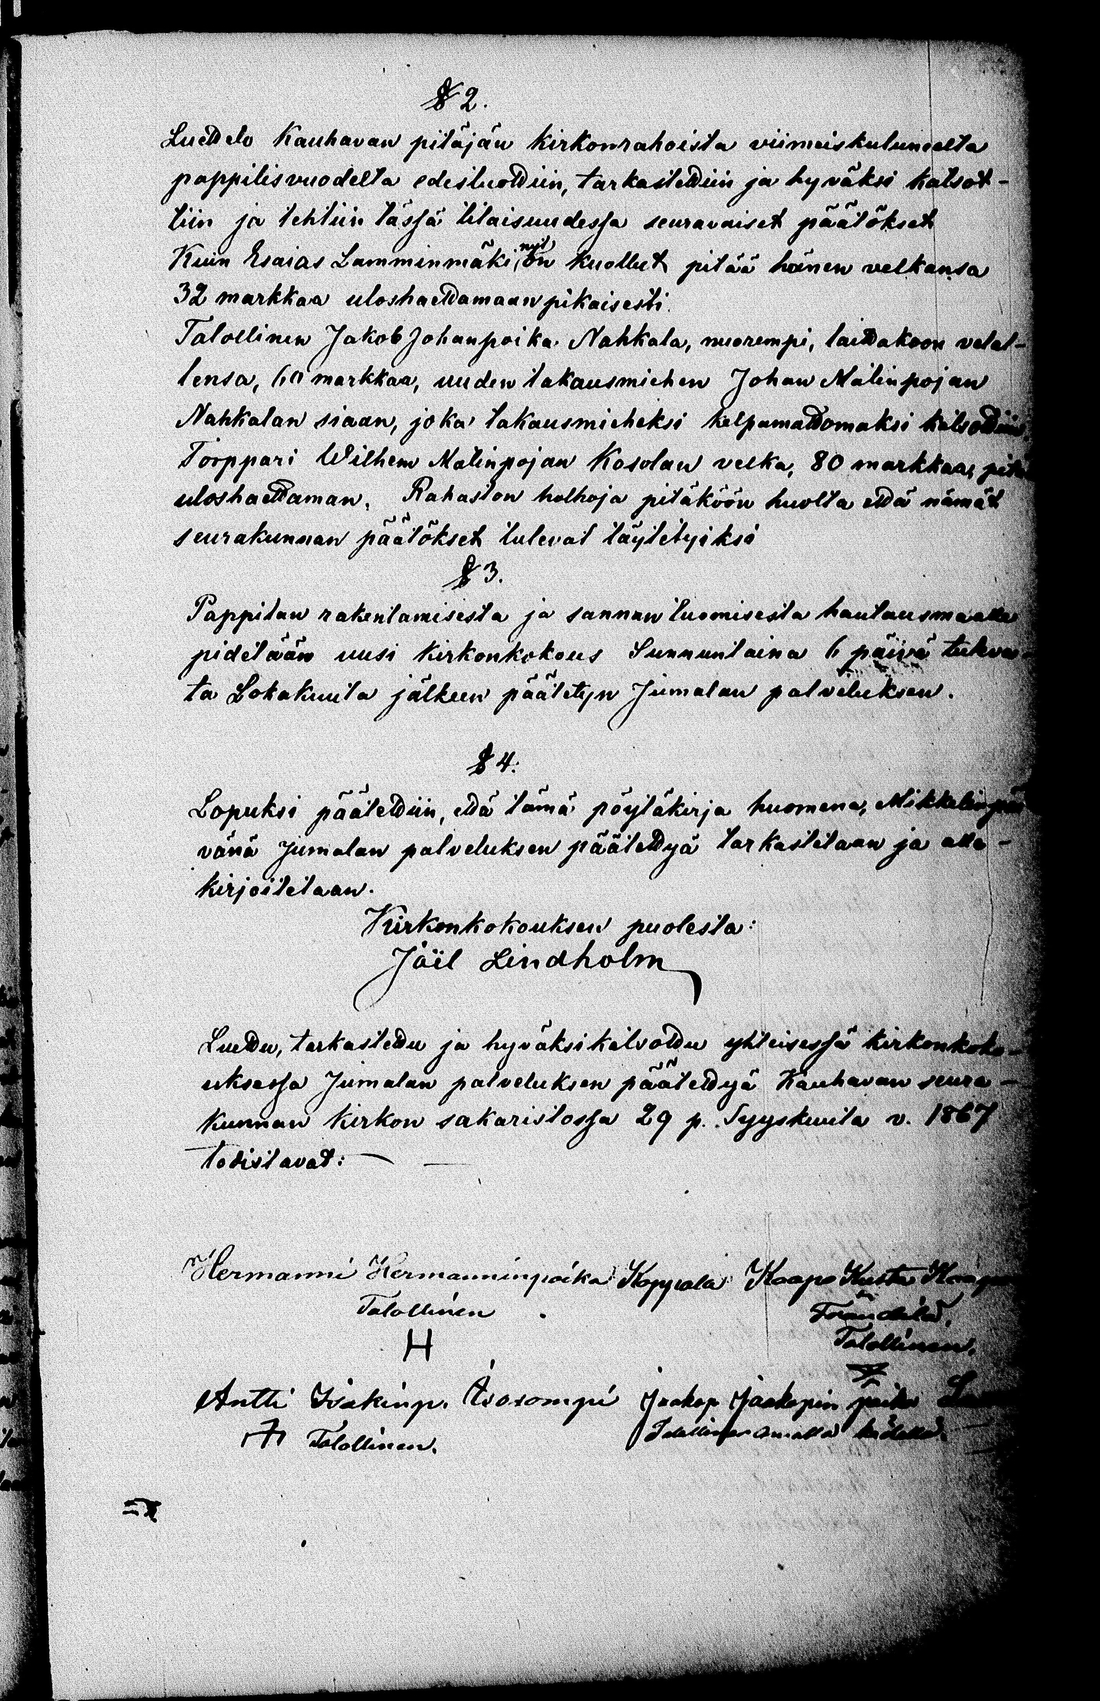 § 2.
Luettelo Kauhavan pitäjän kirkonrahoista viimeiskuluneelta
pappilisvuodelta edestuottiin, tarkastettiin ja hyväksi katsot-
tiin ja tehtiin tässä tilaisuudessa seuravaiset päätökset
Kuin Esaias Lamminmäki nyt on kuollut pitää hänen velkansa
32 markkaa uloshaettamaan pikaisesti.
Talollinen Jakob Johanpoika Nahkala, nuorempi, laittakoon velal-
lensa, 60 markkaa, uuden takausmiehen Johan Matinpojan
Nahkalan siaan, joka takausmieheksi kelpamattomaksi katsottiin.
Torppari Wilhem Matinpojan Kosolan velka, 80 markkaa,
uloshaettaman. Rahaston holhoja pitäköön huolta että nämät
seurakunnan päätökset tulevat täytetyiksi
§ 3.
Pappilan rakentamisesta ja sannan tuomisesta hautausmaalle
pidetään uusi kirkonkokous Sunnuntaina 6 päivä tuleva-
ta Lokakuuta jälkeen päätetyn Jumalan palveluksen.
§ 4.
Lopuksi päätettiin, että tämä pöytäkirja huomena, Mikkelinpäi
vänä Jumalan palveluksen päätettyä tarkastetaan ja alle-
kirjoitetaan.
Kirkonkokouksen puolesta:
Joël Lindholm
Luettu, tarkastettu ja hyväksikatsottu yhteisessä kirkonkoko-
uksessa Jumalan palveluksen päätettyä Kauhavan seura-
kunnan kirkon sakaristossa 29 p. Syyskuuta v. 1867
todistavat:
Hermanni Hermanninpoika Koppala Kaapo Kusta
Talollinen
Talollinen.
H
Antti Isakinp. Isosompi Jaakop Jaakopin poika
Talollinen. Talollinen omalla kädellä.